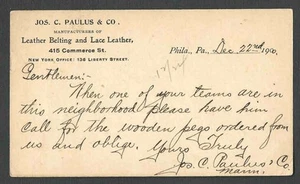 JOS. C. PAULUS & CO.,
MANUFACTURERS OF
Leather Belting and Lace Leather,
415 Commerce St.
NEW YORK OFFICE: 138 LIBERTY STREET.
Phila., Pa., Dec 22nd 190
Gentlemen:
When one of your teams are in
this neighborhood please have him
call for the wooden pegs ordered from
us and oblige. Yours Truly
Jos. C. Paulus & Co.